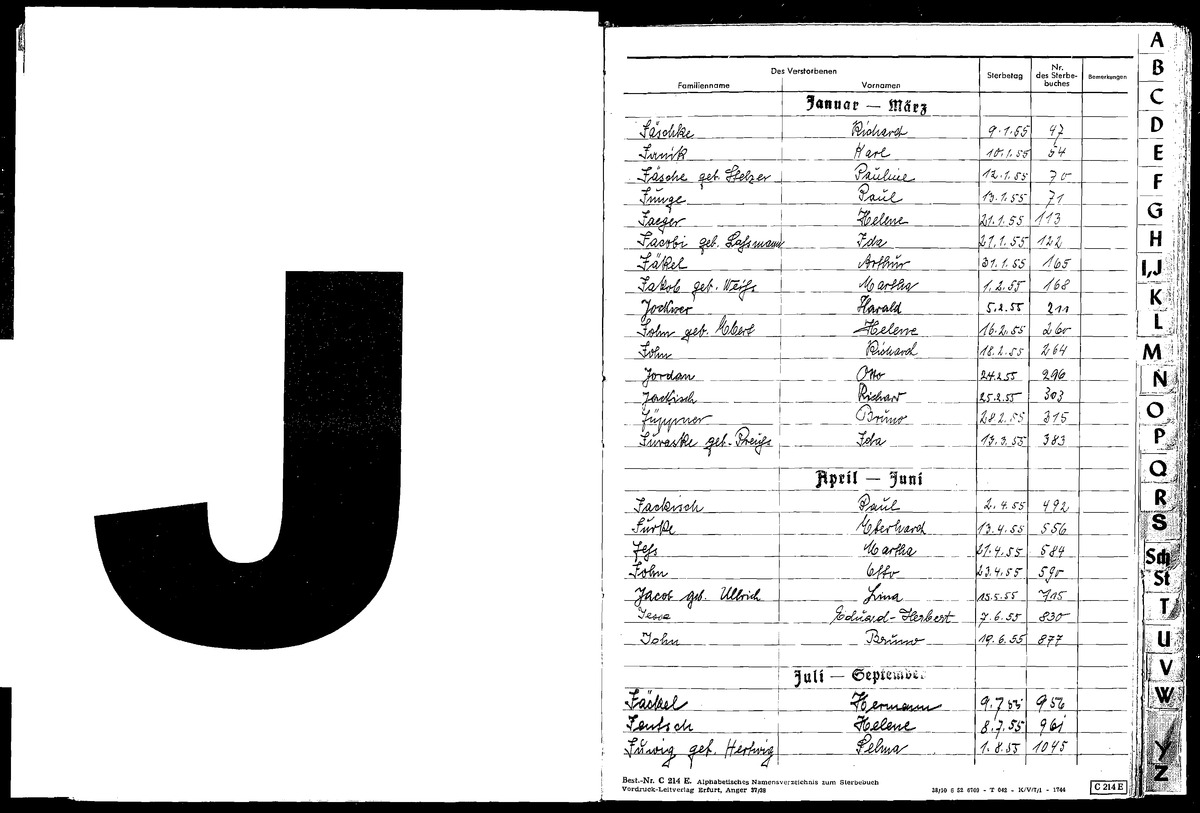 J
Des Verstorbenen
Familienname Vornamen Sterbetag Nr. des Sterbe- buches Bemerkungen
Januar — März
Jäschke Richard 9.1.55 47
Janik Karl 10.1.55 54
Jäsche geb. Stelzer Pauline 12.1.55 70
Junge Paul 13.1.55 71
Jaeger Helene 21.1.55 113
Jacobi geb. Lassmann Ida 21.1.55 122
Jäkel Arthur 31.1.55 165
Jakob geb. Weiß Martha 1.2.55 168
Jockwer Harald 5.2.55 211
John geb. Ebert Helene 16.2.55 260
John Richard 18.2.55 264
Jordan Otto 24.2.55 296
Jackisch Richard 25.2.55 303
Jüppner Bruno 28.2.55 315
Juraske geb. Ida 13.3.55 383
April — Juni
Jackisch Paul 2.4.55 492
Jurke Eberhard 13.4.55 556
Jess Martha 21.4.55 584
John Otto 23.4.55 590
Jacob geb. Ullrich Lina 15.5.55 715
Jesse Eduard-Herbert 7.6.55 830
John Bruno 19.6.55 877
Juli — September
Jäckel Hermann 9.7.55 956
Jentsch Helene 8.7.55 961
Juwig geb. Hertwig Selma 1.8.55 1045
Best.-Nr. C 214 E. Alphabetisches Namensverzeichnis zum Sterbebuch
Vordruck-Leitverlag Erfurt, Anger 37/38
C 214 E
A
B
C
D
E
F
G
H
I,J
K
L
M
N
O
P
Q
R
S
Sch
St
T
U
V
W
Y
Z